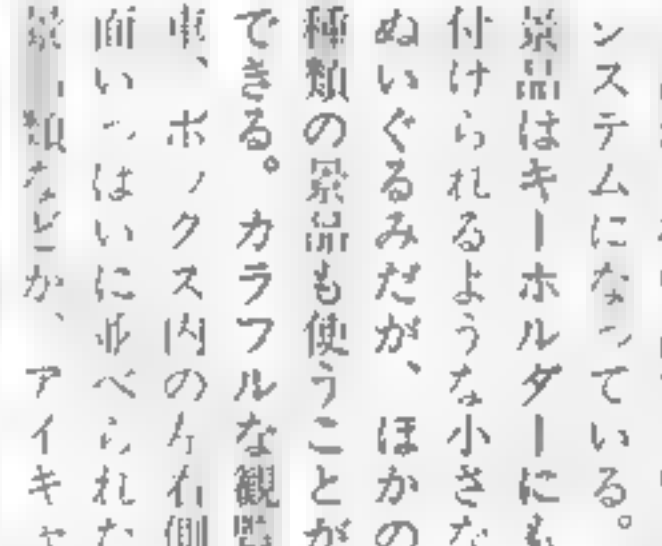 ンステムになっている。
景品はキーホルダーにも
付けられるような小さな
ぬいぐるみだが、ほかの
種類の景品も使うことが
できる。カラフルな観覧
車、ボックス内の左右側
面いっぱいに並べられた
景品類などが、アイキャ